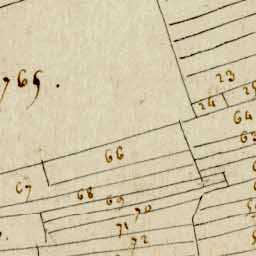 23
765.
24 25
64
66
63
67 68
69
70
71
72